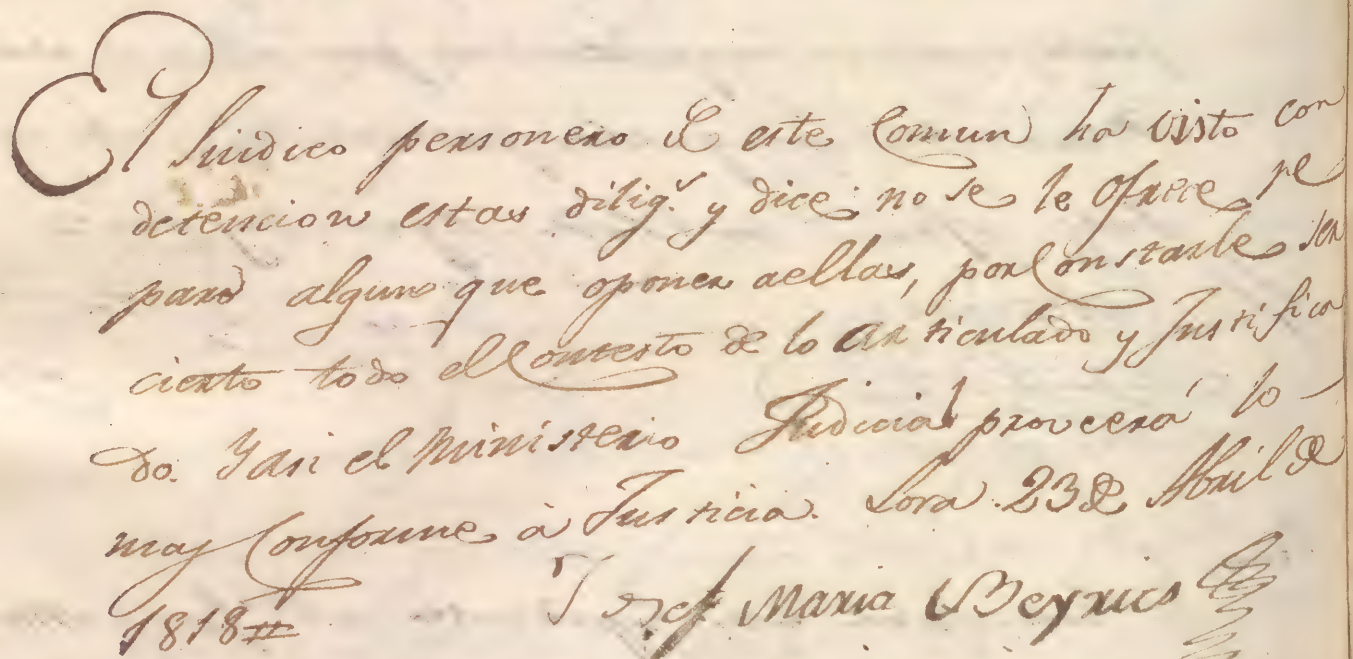 El Sindico personero de este Comun ha visto con
detencion estas dilig.s y dice no se le ofrece re
paro alguno que oponer aellas, por Constarle ser
cierto todo el Contesto de lo articulado y Justifica
do. Y asi el Ministerio Judicial proveerá lo
mas Conforme à Justicia. Lora 23 de Abril de
1818 Josef Maria